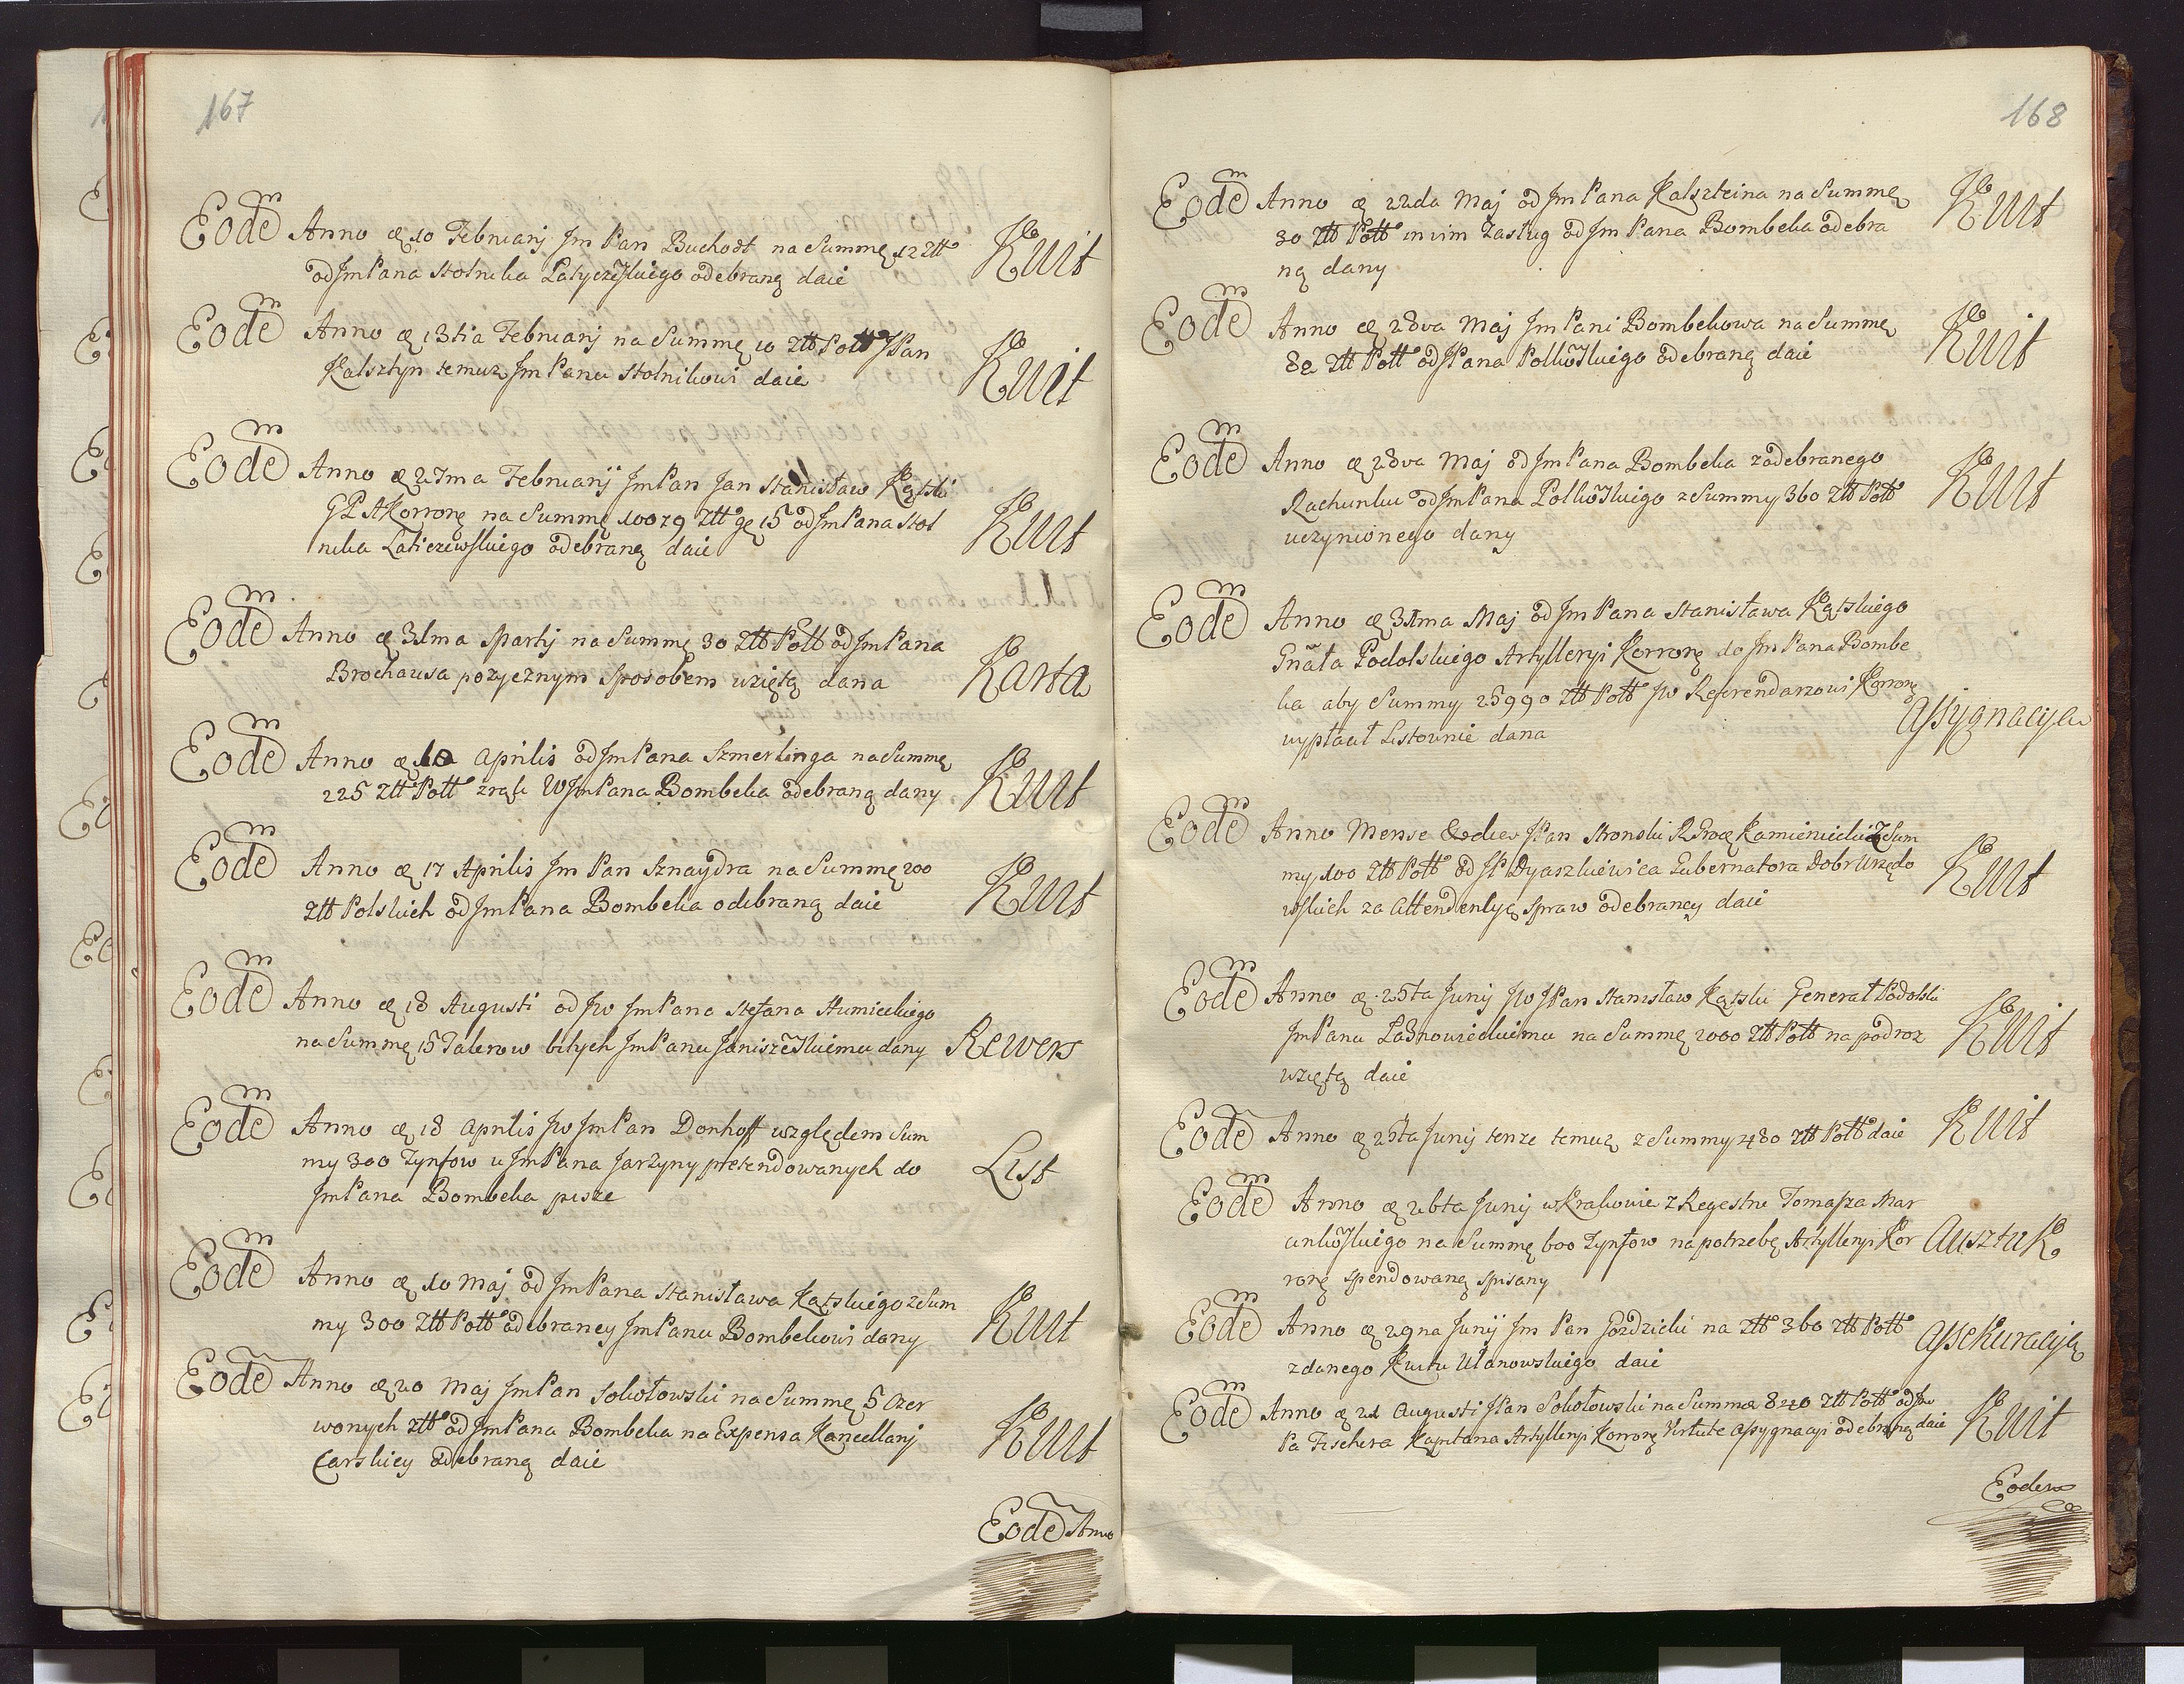 167
Eodem Anno æ 10 Februarij Jm Pan Buchodt na Summę 12 Ztt
od Jm Pana Stolnika Latyczewskiego odebraną daie Kwit
Eodem Anno æ 13tia Februarij na Summę 10 Ztt Poll JPan
Kalsztyn temuz Jm Panu Stolnikowi daie Kwit
Eodem Anno æ 27ma Februarij Jm Pan Jan Stanisław Kątski
G P A Koronę na Summę 10079 Ztt gę 15 od Jm Pana Stol
nika Laticzewskiego odebraną daie Kwit
Eodem Anno æ 31ma Martij na Summę 30 Ztt Poll od Jm Pana
Brochausa pozycznym sposobem wziętą dana Karta
Eodem Anno æ 10 Aprilis od Jm Pana Szmerlinga na Summę
225 Ztt Poll z rąk W Jm Pana Bombeka odebraną dany Kwit
Eodem Anno æ 17 Aprilis Jm Pan Sznaydra na Summę 200
Ztt Polskich od Jm Pana Bombeka odebraną daie Kwit
Eodem Anno æ 18 Augusti od Jw Jm Pana Stefana Humieckiego
na Summę 15 Talerow bitych Jm Panu Janiszewskiemu dany Rewers
Eodem Anno æ 18 Aprilis Jw Jm Pan Donhoff względem Sum
my 300 Tynfow u Jm Pana Jarzyny pretendowanych do
Jm Pana Bombeka pisze List
Eodem Anno æ 10 Maj od Jm Pana Stanisława Kątskiego z Sum
my 300 Ztt Poll odebraney Jm Panu Bombekowi dany Kwit
Eode Anno æ 20 Maj Jm Pan Sokołowski na Summę 5 Czer
wonych Ztt od Jm Pana Bombeka na Expensa Kancellarij
Carskiey odebraną daie Kwit
Eode Anno
168
Eodem Anno æ 22da Maj od Jm Pana Kalszteina na Summę
30 Ztt Poll in vim Zasług od Jm Pana Bombeka odebra
ną dany Kwit
Eodem Anno æ 28va Maj Jm Pani Bombekowa na Summę
80 Ztt Poll od JPana Polkowskiego odebraną daie Kwit
Eodem Anno æ 28va Maj od Jm Pana Bombeka z odebranego
Rachunku od Jm Pana Polkowskiego z Summy 360 Ztt Poll
uczynionego dany Kwit
Eodem Anno æ 31ma Maj od Jm Pana Stanisława Kątskiego
Gnała Podolskiego Artylleryi Koronę do Jm Pana Bombe
ka aby Summy 25990 Ztt Poll Jw Referendarzowi Koronę
wypłacił Listownie dana Assygnacya
Eodem Anno Mense & die JPan Stronski R Pro Kamieniecki z Sum
my 100 Ztt Poll od JP Dyaszkiewica Gubernatora Dobr Urzędo
wskich za Attendentyę spraw odebraney daie Kwit
Eodem Anno æ 25ta Junij Jw JPan Stanisław Kątski Generał Podolski
Jm Panu Lasnowieckiemu na Summę 2000 Ztt Poll na podroz
wziętą daie Kwit
Eode Anno æ 25ta Junij tenze temuz z Summy 480 Ztt Poll daie Kwit
Eodem Anno æ 26ta Junij w Krakowie z Regestru Tomasza Mar
ankowskiego na Summę 600 Tynfow na potrzebę Artylleryi Kor
ronę spendowaną spisany Ausztuk
Eodem Anno æ 29na Junij Jm Pan Gozdzicki na Ztt 360 Ztt Poll
z danego Kwitu Ulanowskiego daie Assekuracyą
Eodem Anno æ 21 Augusti JPan Sokołowski na Summę 840 Ztt Poll od Jm
Pa Fischera Kapitana Artylleryi Koronę Virtute Assygnacyi odebraną daie Kwit
Eodem